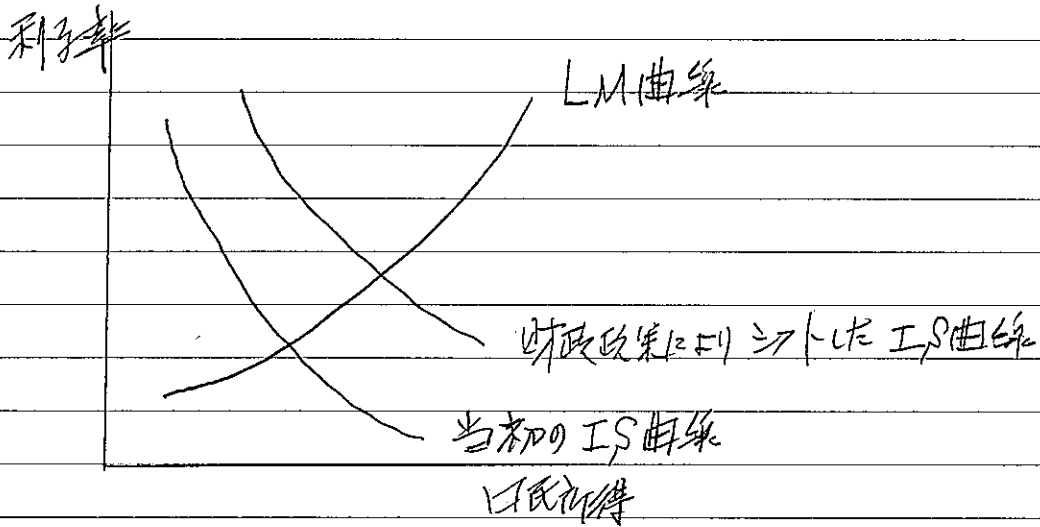 利子率
LM曲線
財政政策によりシフトした IS曲線
当初の IS曲線
国民所得